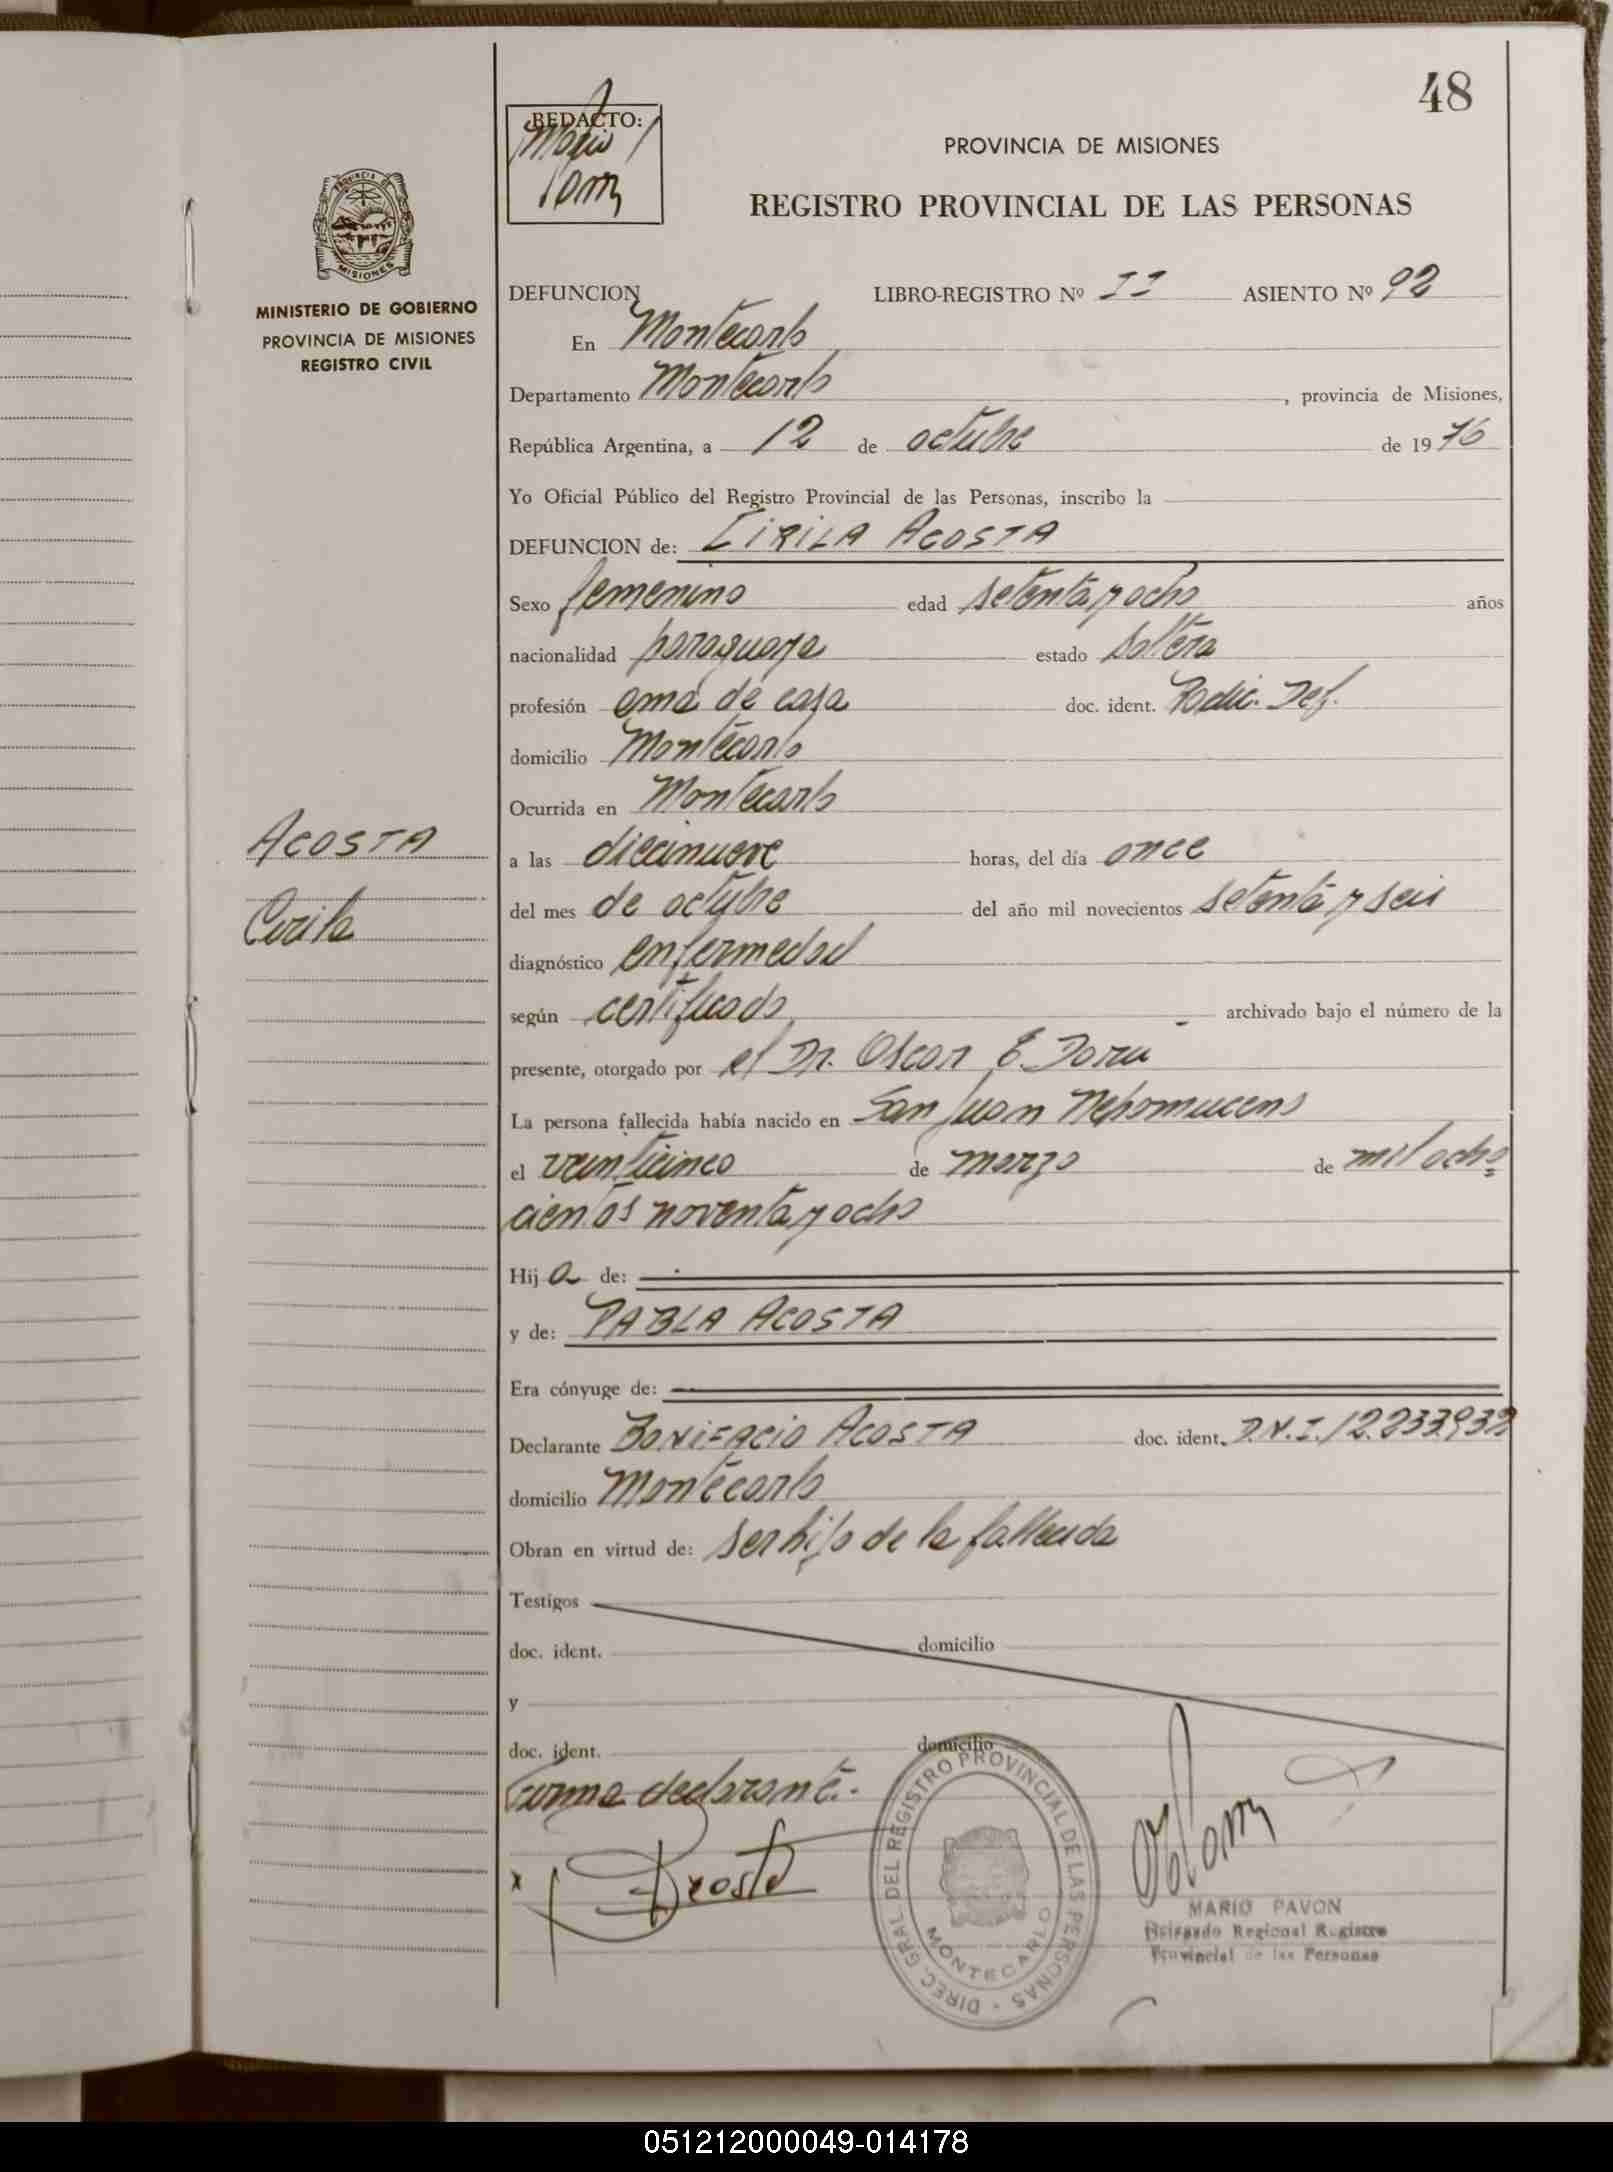 48
REDACTO:
Mario
Pavon
PROVINCIA DE MISIONES
REGISTRO PROVINCIAL DE LAS PERSONAS
PROVINCIA DE
MISIONES
MINISTERIO DE GOBIERNO
PROVINCIA DE MISIONES
REGISTRO CIVIL
DEFUNCION LIBRO-REGISTRO Nº II ASIENTO Nº 92
En Montecarlo
Departamento Montecarlo, provincia de Misiones,
República Argentina, a 12 de octubre de 1976
Yo Oficial Público del Registro Provincial de las Personas, inscribo la
DEFUNCION de: CIRILA ACOSTA
Sexo femenino edad setenta y ocho años
nacionalidad paraguaya estado soltera
profesión ama de casa doc. ident. Radic. Def.
domicilio Montecarlo
Ocurrida en Montecarlo
ACOSTA
a las diecinueve horas, del día once
Cirila
del mes de octubre del año mil novecientos setenta y seis
diagnóstico enfermedad
según certificado archivado bajo el número de la
presente, otorgado por el Dr. Oscar E.
La persona fallecida había nacido en San Juan Nepomuceno
el veinticinco de marzo de mil ocho=
cientos noventa y ocho
Hija de:
y de: PABLA ACOSTA
Era cónyuge de:
Declarante BONIFACIO ACOSTA doc. ident. D.N.I. 12.233.932
domicilio Montecarlo
Obran en virtud de: ser hijo de la fallecida
Testigos
doc. ident. domicilio
y
doc. ident. domicilio
Firma declarante.-
x Acosta
DIREC. GRAL DEL REGISTRO PROVINCIAL DE LAS PERSONAS
MONTECARLO
MARIO PAVON
Delegado Regional Registro
Provincial de las Personas
051212000049-014178